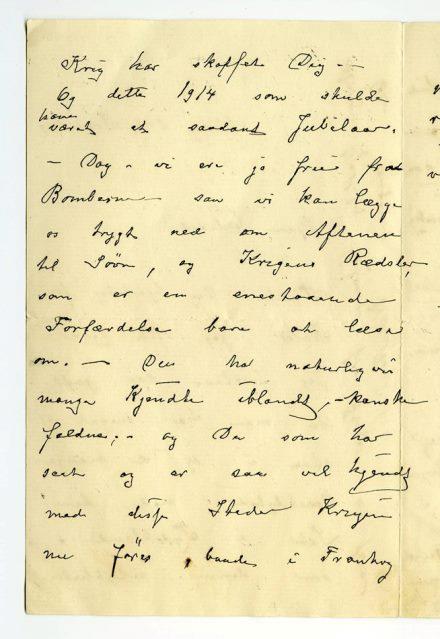 Krig har skaffet Dig. –
Og dette 1914 som skulde
have
været et saadant Jubelaar.
– Dog – vi ere jo frie fra
Bomberne saa vi kan lægge
os trygt ned om Aftenen
til Søvn, og Krigens Rædsler,
som er en enestaaende
Forfærdelse bare at læse
om. – Du har naturligvis
mange Kjendte iblandt, – kanske
faldne; – og Du som har
seet og er saa vel kjendt
med disse Steder Krigen
nu føres, baade i Frankrig